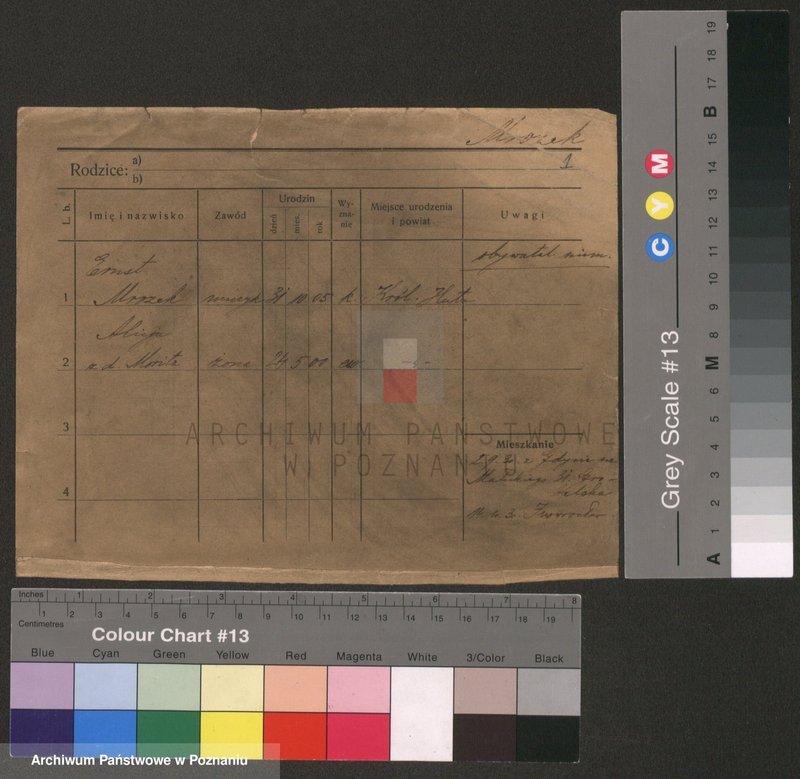 Mrozek
1
Rodzice: a)
b)
L. b.
Imię i nazwisko
Zawód
Urodzin
dzień
mies.
rok
Wy-
zna-
nie
Miejsce urodzenia
i powiat
Uwagi
obywatel niem.
Ernst
1 Mrozek 31 10 05 k Król. Huta
Alicja
2 z d. Moritz żona 24 5 00 ew -"-
3
4
Mieszkanie
2.9.30 z Gdyni
ARCHIWUM PAŃSTWOWE
W POZNANIU
Grey Scale #13
C Y M
A 1 2 3 4 5 6 M 8 9 10 11 12 13 14 15 B 17 18 19
Inches 1 2 3 4 5 6 7 8
Centimetres 1 2 3 4 5 6 7 8 9 10 11 12 13 14 15 16 17 18 19
Colour Chart #13
Blue Cyan Green Yellow Red Magenta White 3/Color Black
Archiwum Państwowe w Poznaniu